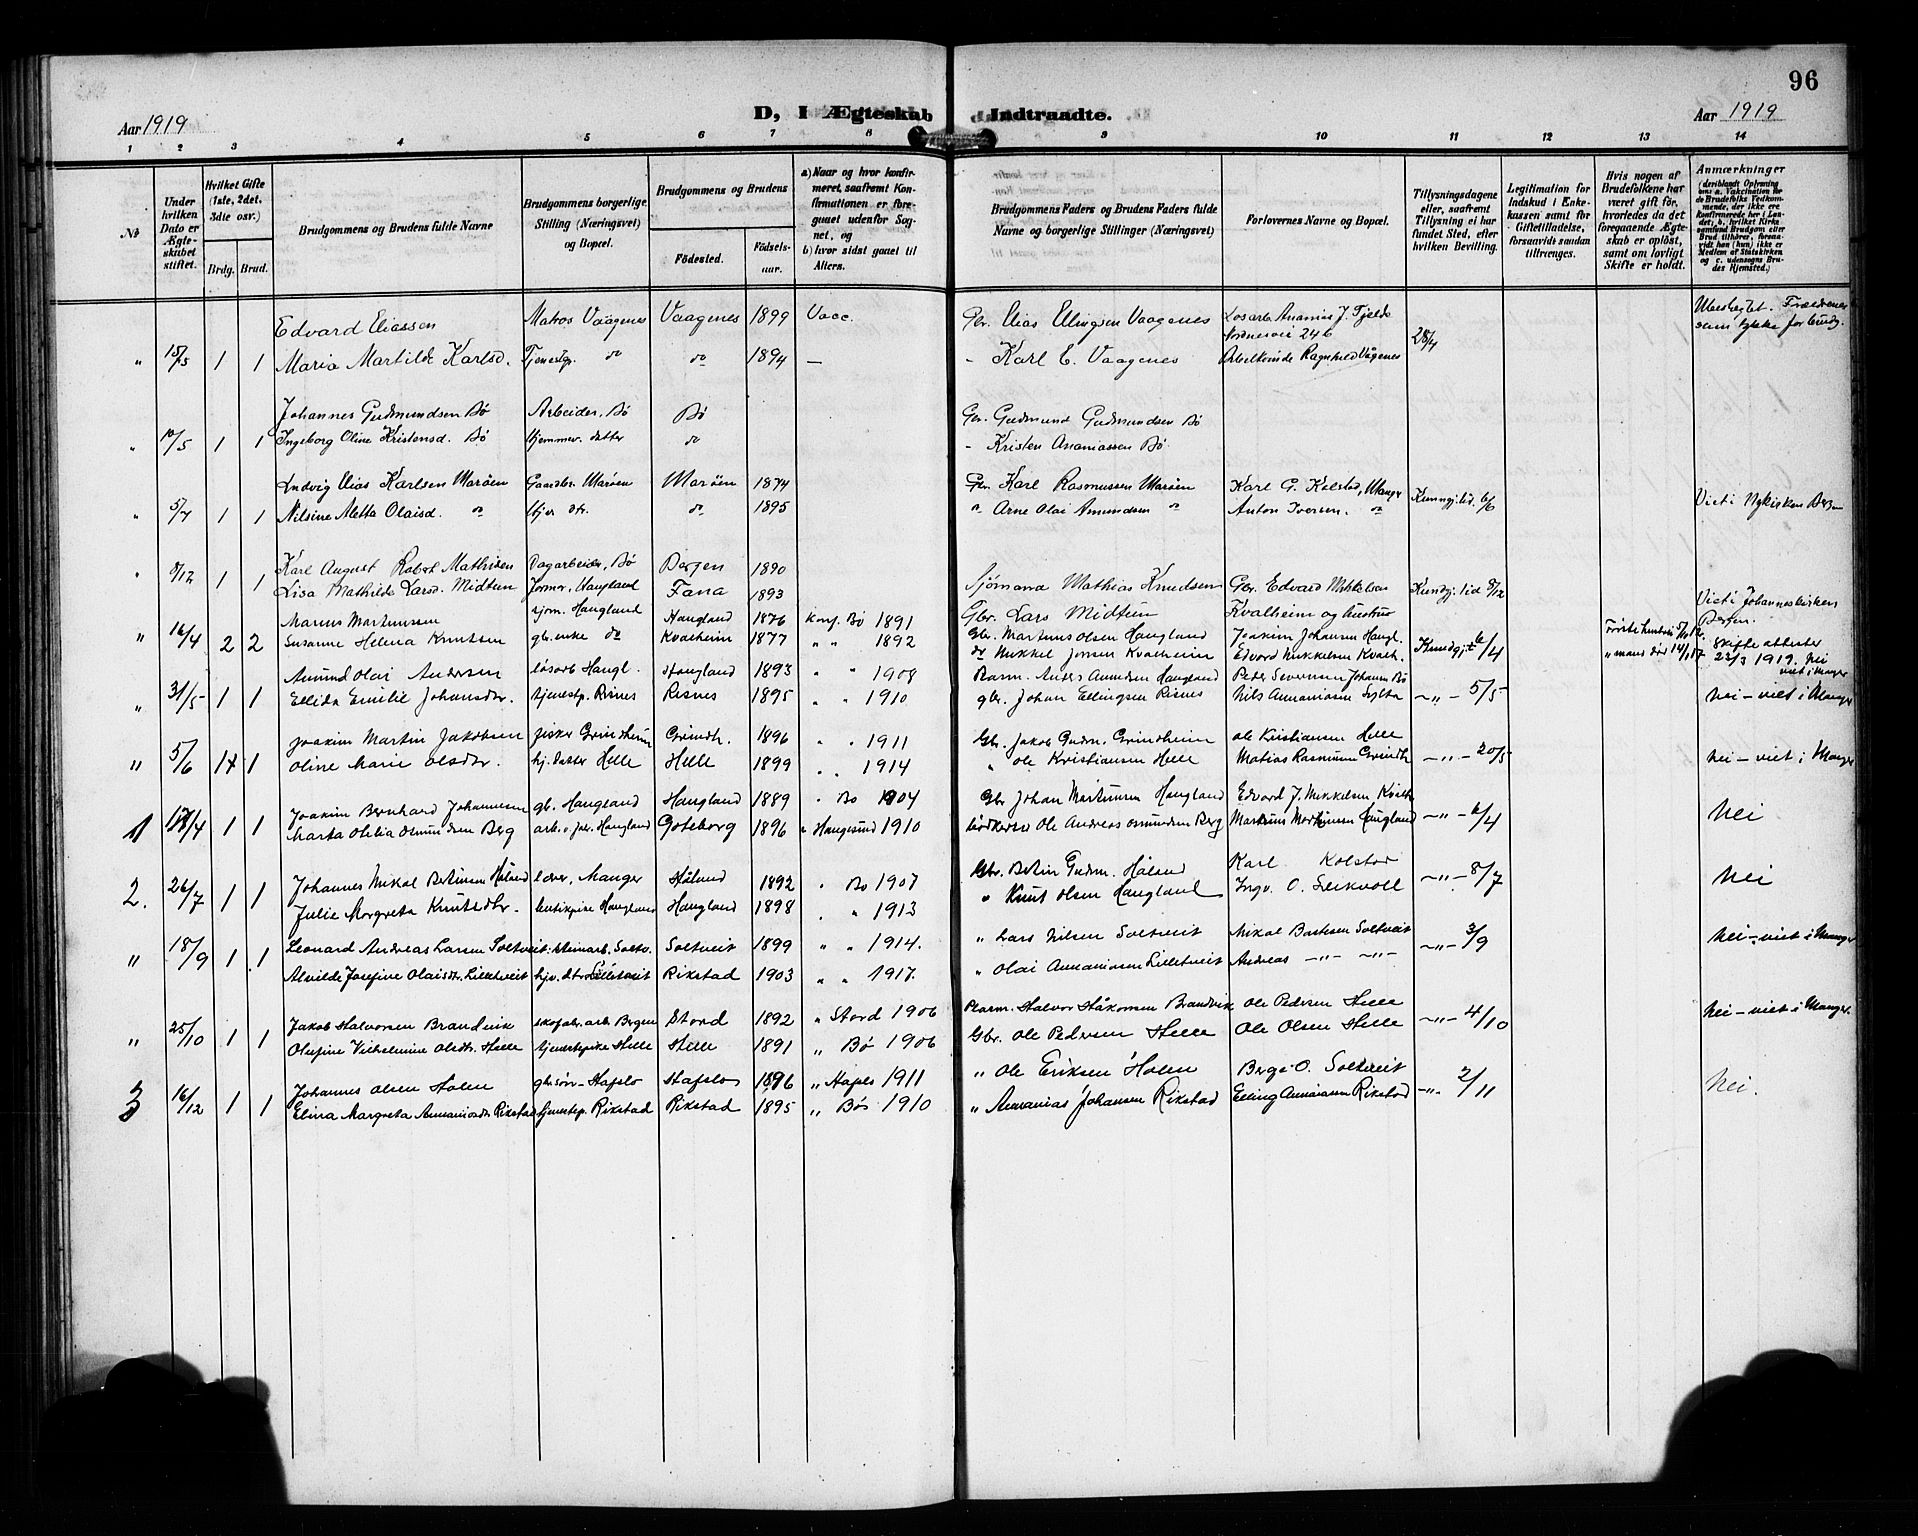 96
Aar 1919
D, I Ægteskab Indtraadte.
Aar 1919
1 2 3 4 5 6 7 8 9 10 11 12 13 14
No
Under hvilken Dato er Ægteskabet stiftet.
Hvilket Gifte (1ste, 2det, 3die osv.)
Brdg. Brud.
Brudgommens og Brudens fulde Navne
Brudgommens borgerlige Stilling (Næringsvei) og Bopæl.
Brudgommens og Brudens
Födested.
Födselsaar.
a) Naar og hvor konfirmeret, saafremt Konfirmationen er foregaaet udenfor Sognet, og
b) hvor sidst gaaet til Alters.
Brudgommens Faders og Brudens Faders fulde Navne og borgerlige Stillinger (Næringsvei)
Forlovernes Navne og Bopæl.
Tillysningsdagene eller, saafremt Tillysning ei har fundet Sted, efter hvilken Bevilling.
Legitimation for Indskud i Enkekassen samt for Giftetilladelse, forsaavidt saadan tiltrænges.
Hvis nogen af Brudefolkene har været gift för, hvorledes da det foregaaende Ægteskab er oplöst, samt om lovligt Skifte er holdt.
Anmærkninger
Edvard Eliassen Matros Vaagenes Vaagenes 1899 Vacc. Gbr. Elias Ellingsen Vaagenes Losarb. Ananias J. Fjelde Ubeslægtet. Forældrenes
Nordnesvei 24b samtykke for brudg.
" 15/5 1 1 Maria Martilde Karlsd. Tjenestp. do do 1894 — - Karl E. Vaagenes Ragnhild Vågenes 28/4
Johannes Gudmundsen Bø Arbeider, Bø Bø Gbr. Gudmund Gudmundsen Bø
" 10/5 1 1 Ingeborg Oline Kristensd. Bø hjemmev. datter do - Kristen Ananiassen Bø
Ludvig Elias Karlsen Marøen Gaardbr. Marøen Marøen 1874 Gbr. Karl Rasmussen Marøen Karl G. Kolstad, Manger
" 5/7 1 1 Nilsine Metta Olaisd. do hjev. dtr. do 1895 do Arne Olai Amundsen do Anton Iversen. do Kunngj. tid. 6/6 Viet i Nykirken Bergen
Karl August Robert Mathisen Dagarbeider, Bø Bergen 1890 Sjömand Mathias Knudsen Gbr. Edvard Mikkelsen
" 8/12 1 1 Lisa Mathilde Larsd. Midtun Jomfr. Haugland Fana 1893 Gbr. Lars Midtun Kvalheim og hustru Kundgj. tid 8/12 Viet i Johanneskirken Bergen.
Marius Martinusen sjom. Haugland Haugland 1876 Konf. Bø 1891 Gbr. Martinus Olsen Haugland Joakim Johansen Haugl.
" 16/4 2 2 Susanne Helena Knutsen gb. enke do Kvalheim 1877 " " 1892 do Mikkel Jonsen Kvalheim Edvard Mikkelsen Kvalh. Kundgj. 6/4 Skifteattester 22/3 1919. Nei viet i Manger
Amund Olai Andersen løsarb Haugl. Haugland 1893 " " 1908 Anders Amundsen Haugland Peder Severinsen Johannes Bø
" 31/5 1 1 Ellida Emilie Johansdtr. tjenestp. Risnes Risnes 1895 " " 1910 gbr. Johan Ellingsen Risnes Nils Annaniasen Sylta —"— 5/5 nei – viet i Manger
Joakim Martin Jakobsen fisker Grindheim Grindh. 1896 " " 1911 Gbr. Jakob Gudm. Grindheim Ole Kristiansen Helle
" 5/6 1 1 Oline Marie Olsdtr. hj. datter Helle Helle 1899 " " 1914 " Ole Kristiansen Helle Matias Rasmusen Grindh. —"— 20/5 Nei – viet i Manger
Joakim Bernhard Johannesen gb. Haugland Haugland 1889 " Bø 1904 Gbr Johan Martinusen Haugland Edvard J. Mikkelsen Kvalh.
1 /4 1 1 Marta Otilia Osmundsen Berg Haugland Goteborg 1896 " Haugesund 1910 Ole Andreas Osmundsen Berg Martinus Martinusen Haugland —"— 6/4 Nei
Johannes Mikal Bertinsen Håland Manger Håland 1892 " Bø 1907 Gbr. Bertin Gudm. Håland Karl Kolstad
2. 26/7 1 1 Julie Margreta Knutsdtr. Haugland Haugland 1898 " " 1913 " Knut Olsen Haugland Ingv. O. Leikvoll —"— 8/7 Nei
" 18/9 1 1 Leonard Andreas Larsen Soltveit Steinarb. Soltv. Soltveit 1899 " " 1914. " Lars Nilsen Soltveit Mikal Bastesen Soltveit —"— 3/9 Nei – viet i Manger
Alvilde Josefine Olaisdtr. Litletveit hjv. dtr Litletveit Rikstad 1903 " " 1917. " Olai Annaniasen Litletveit Andreas —"— —"—
Jakob Halvorsen Brandvik skofabr. arb. Bergen Stord 1892 " Stord 1906 Halvor Håkonsen Brandvik Ole Pedersen Helle Nei – viet i Manger.
" 25/10 1 1 Olufine Vilhelmine Olsdtr. Helle tjenestpike Helle Helle 1891 " Bø 1906 Gbr. Ole Pedersen Helle Ole Olsen Helle —"— 4/10
Johannes Olsen Holen gbr.søn - Hafslo Hafslo 1896 " Hafslo 1911 " Ole Eriksen Holen Berge O. Soltveit
3 16/12 1 1 Elina Margreta Annaniasdtr. Rikstad tjenestp. Rikstad Rikstad 1895 " Bø 1910 " Annanias Johansen Rikstad Elling Annaniasen Rikstad —"— 2/11 Nei.